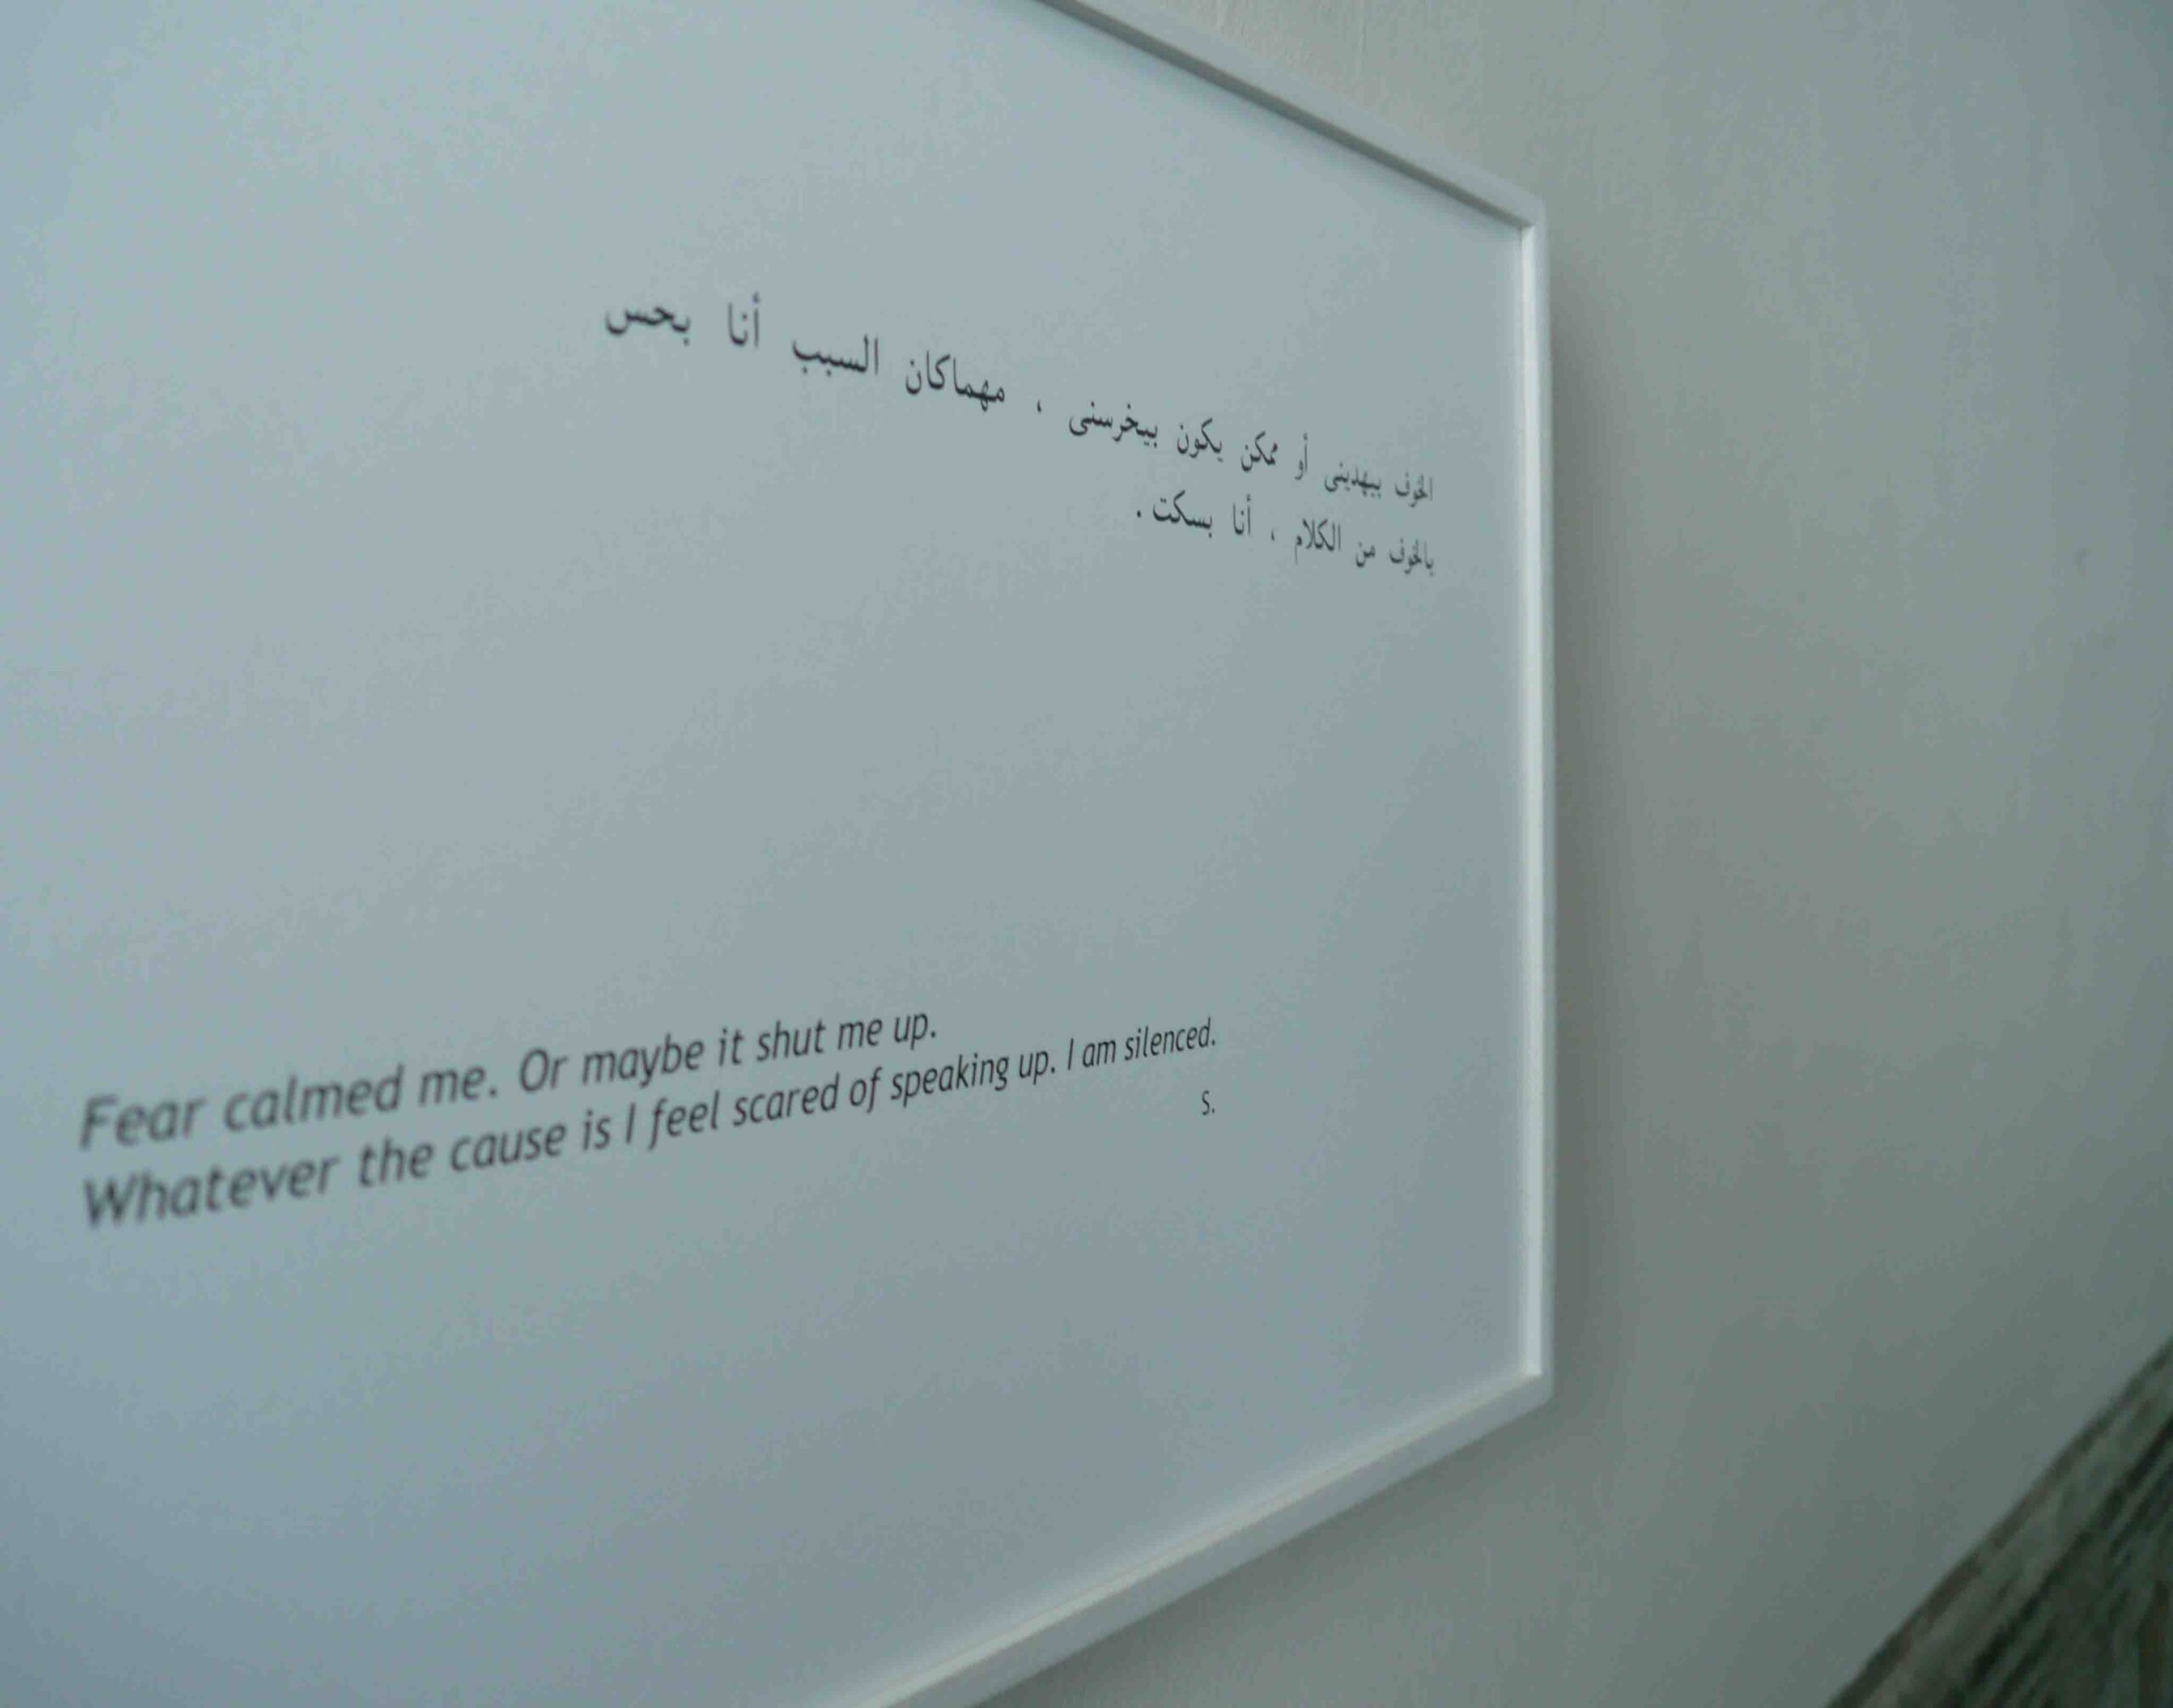 الخوف بيهدينى أو ممكن يكون بيخرسنى ، مهماكان السبب أنا بحس
بالخوف من الكلام ، أنا بسكت .
Fear calmed me. Or maybe it shut me up.
Whatever the cause is I feel scared of speaking up. I am silenced.
S.